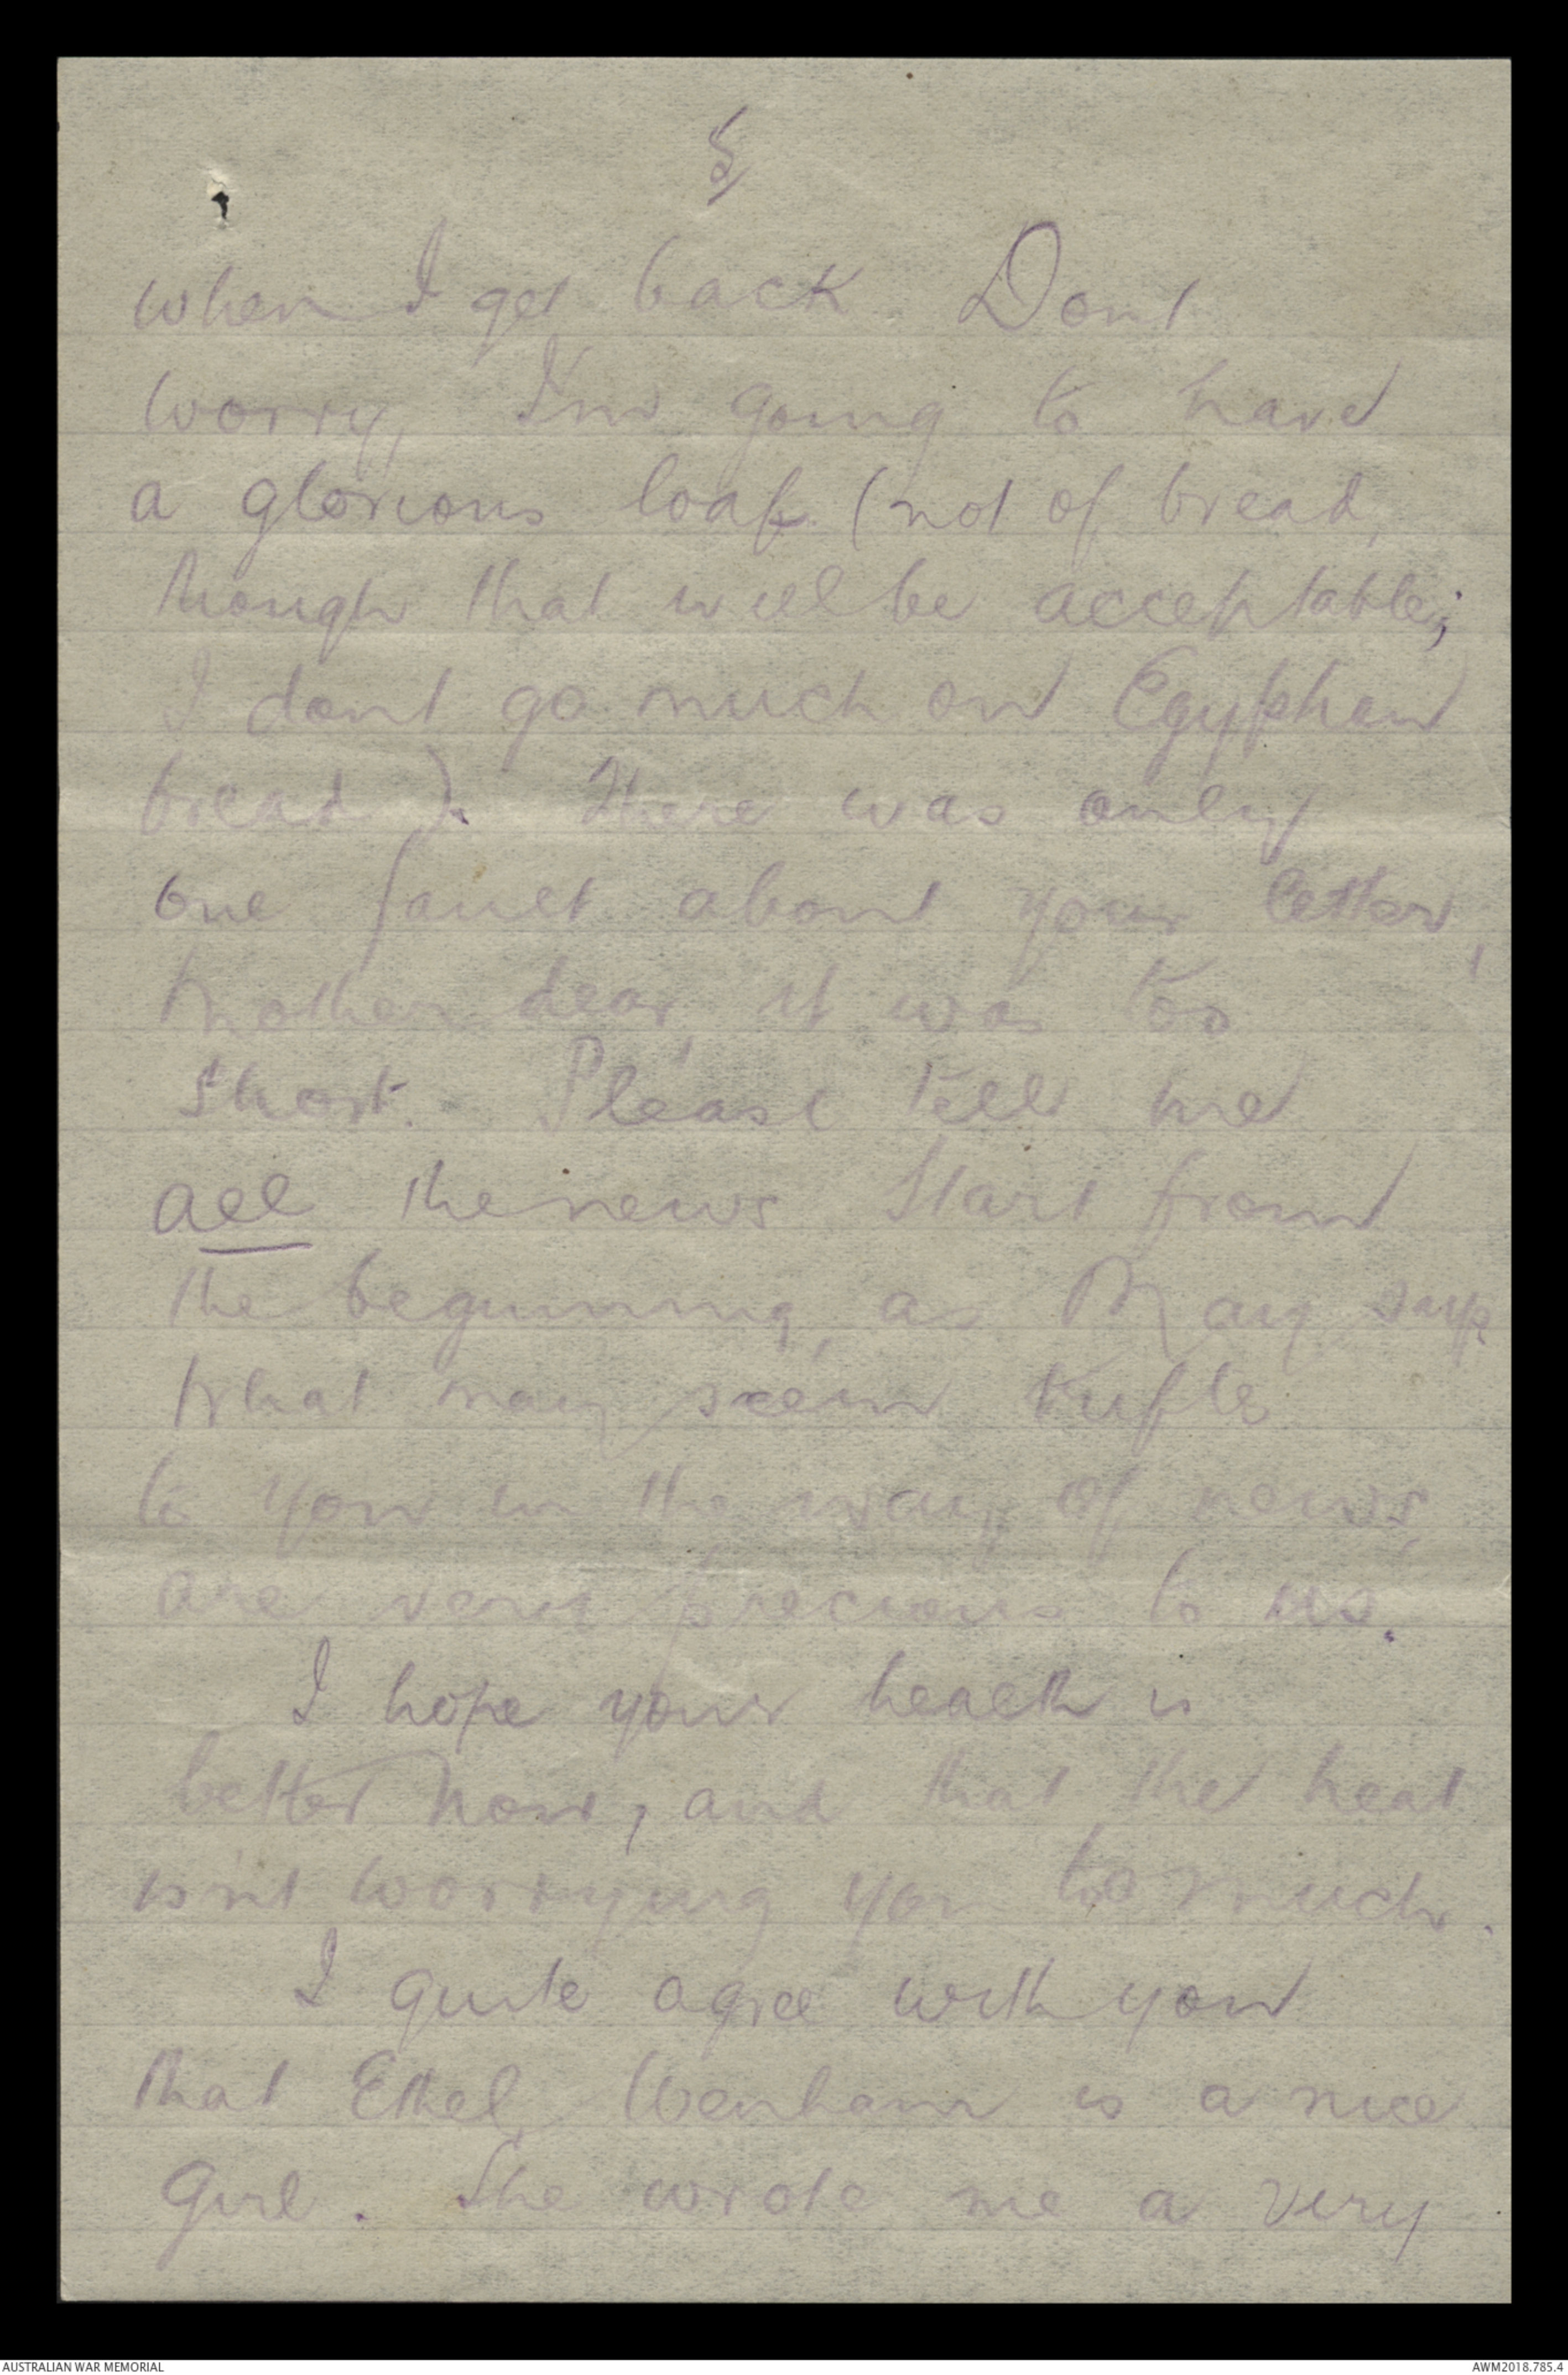 5
when I get back. Dont
worry, I'm going to have
a glorious loaf (not of bread,
though that will be acceptable;
I dont go much on Egyptian
bread). There was only
one fault about your letter,
mother dear, it was too
short. Please tell me
all the news. Start from
the beginning, as Mary says.
What may seem trifles
to you in the way of news,
are very precious to us.
I hope your health is
better now, and that the heat
isn't worrying you too much.
I quite agree with you
that Ethel Wenham is a nice
girl. She wrote me a very
AUSTRALIAN WAR MEMORIAL
AWM2018.785.4